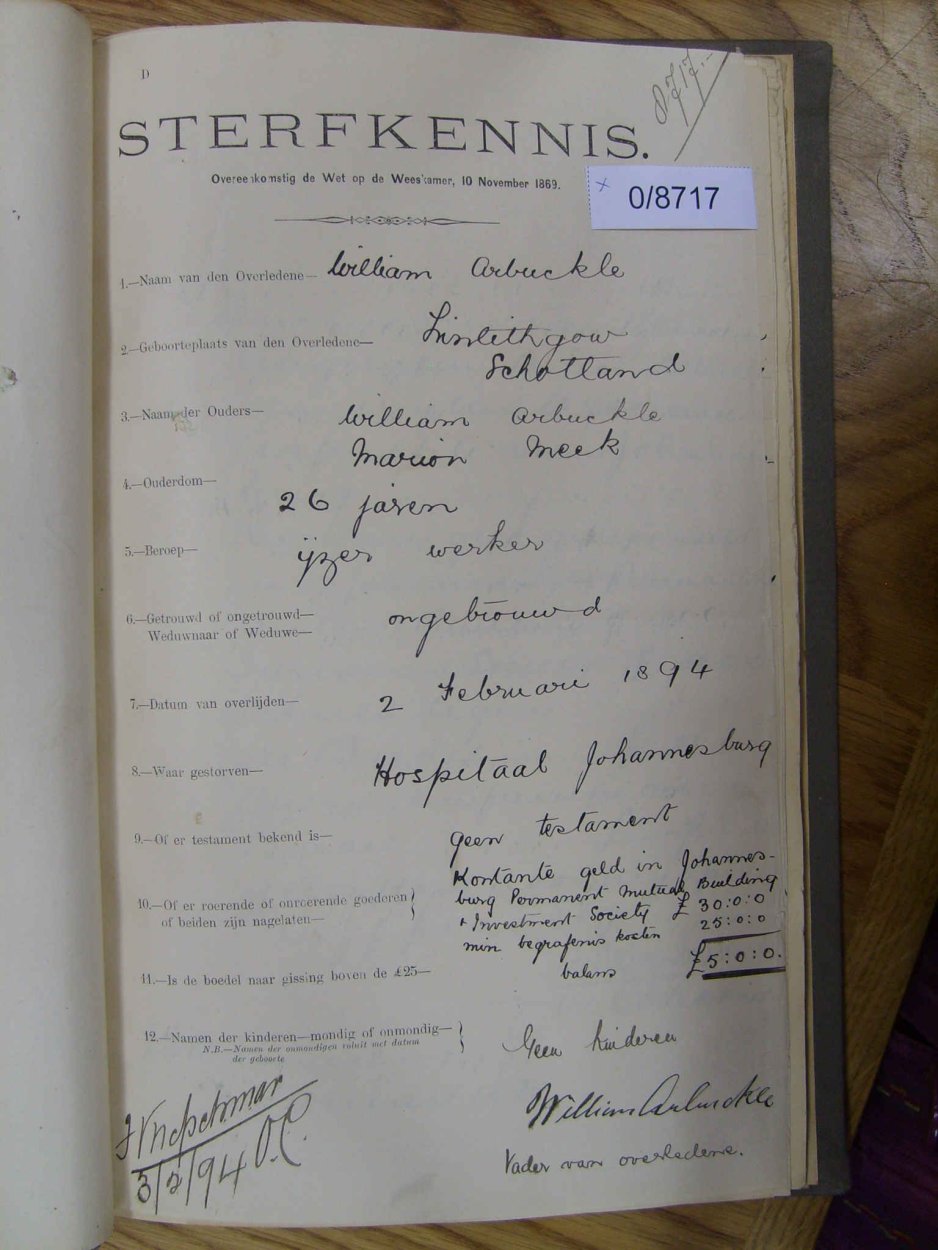 D
8717.-
STERFKENNIS.
Overeenkomstig de Wet op de Weeskamer, 10 November 1869.
x 0/8717
1.—Naam van den Overledene— William Arbuckle
2.—Geboorteplaats van den Overledene— Linlithgow
Schotland
3.—Naam der Ouders— William Arbuckle
Marion Meek
4.—Ouderdom—
26 jaren
5.—Beroep— ijzer werker
6.—Getrouwd of ongetrouwd— ongetrouwd
Weduwnaar of Weduwe—
7.—Datum van overlijden— 2 Februari 1894
8.—Waar gestorven— Hospitaal Johannesburg
9.—Of er testament bekend is— geen testament
Kontante geld in Johannes-
10.—Of er roerende of onroerende goederen burg Permanent Mutual Building
of beiden zijn nagelaten— + Investment Society £ 30:0:0
min begrafenis kosten 25:0:0
11.—Is de boedel naar gissing boven de £25— balans £5:0:0.
12.—Namen der kinderen—mondig of onmondig— Geen kinderen
N.B.—Namen der onmondigen voluit met datum
der geboorte
William Arbuckle
3/2/94
Vader van overledene.